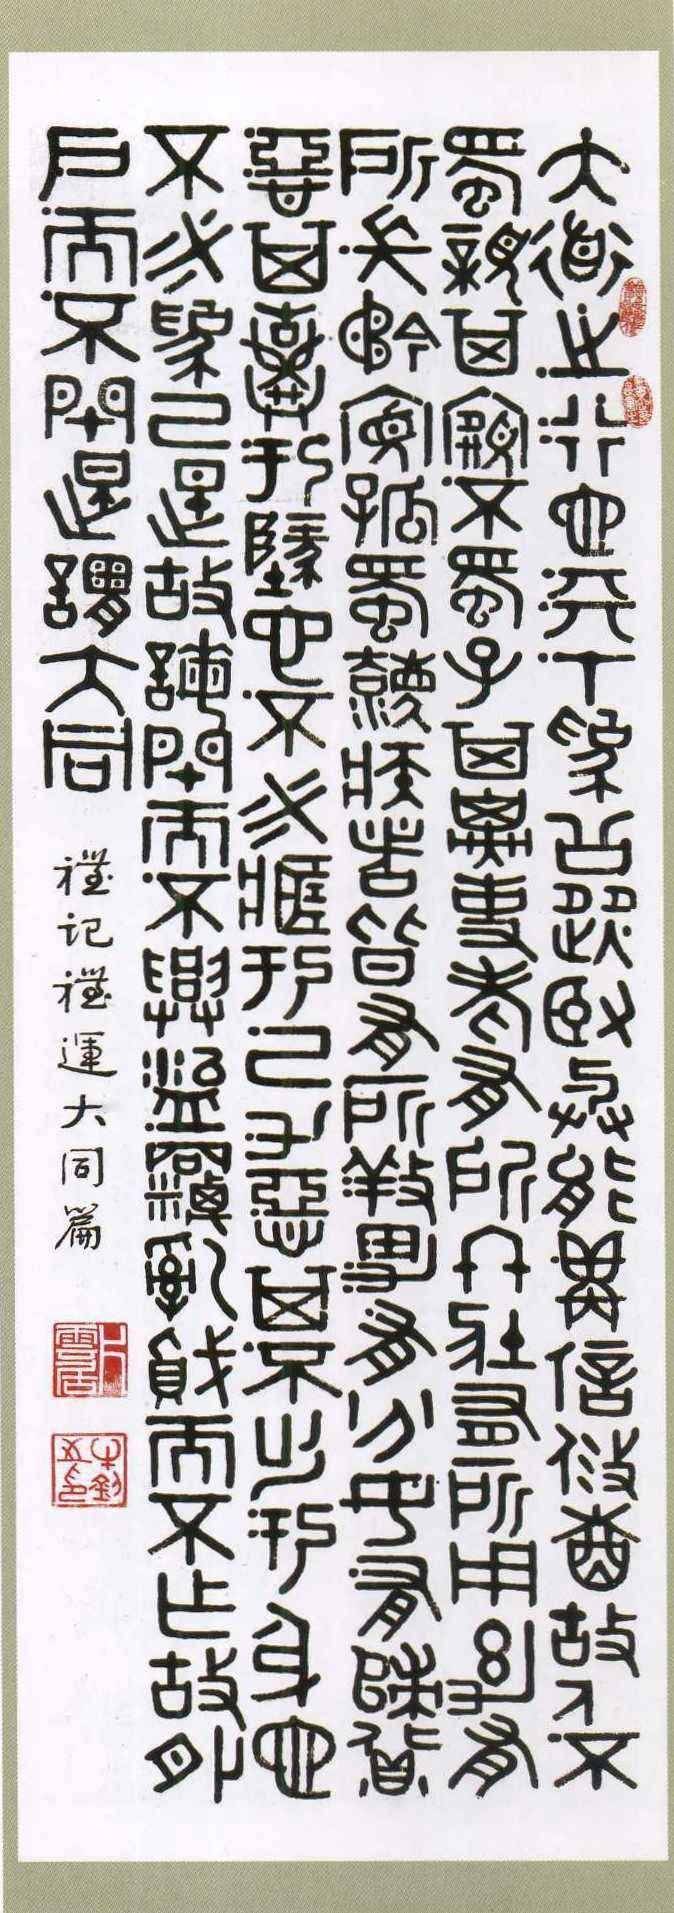 大道之行也天下為公選賢與能講信修睦故人不
獨親其親不獨子其子使老有所終壯有所用幼有
所長矜寡孤獨廢疾者皆有所養男有分女有歸貨
惡其棄於地也不必藏於己力惡其不出於身也
不必為己是故謀閉而不興盜竊亂賊而不作故外
戶而不閉是謂大同
禮记禮運大同篇